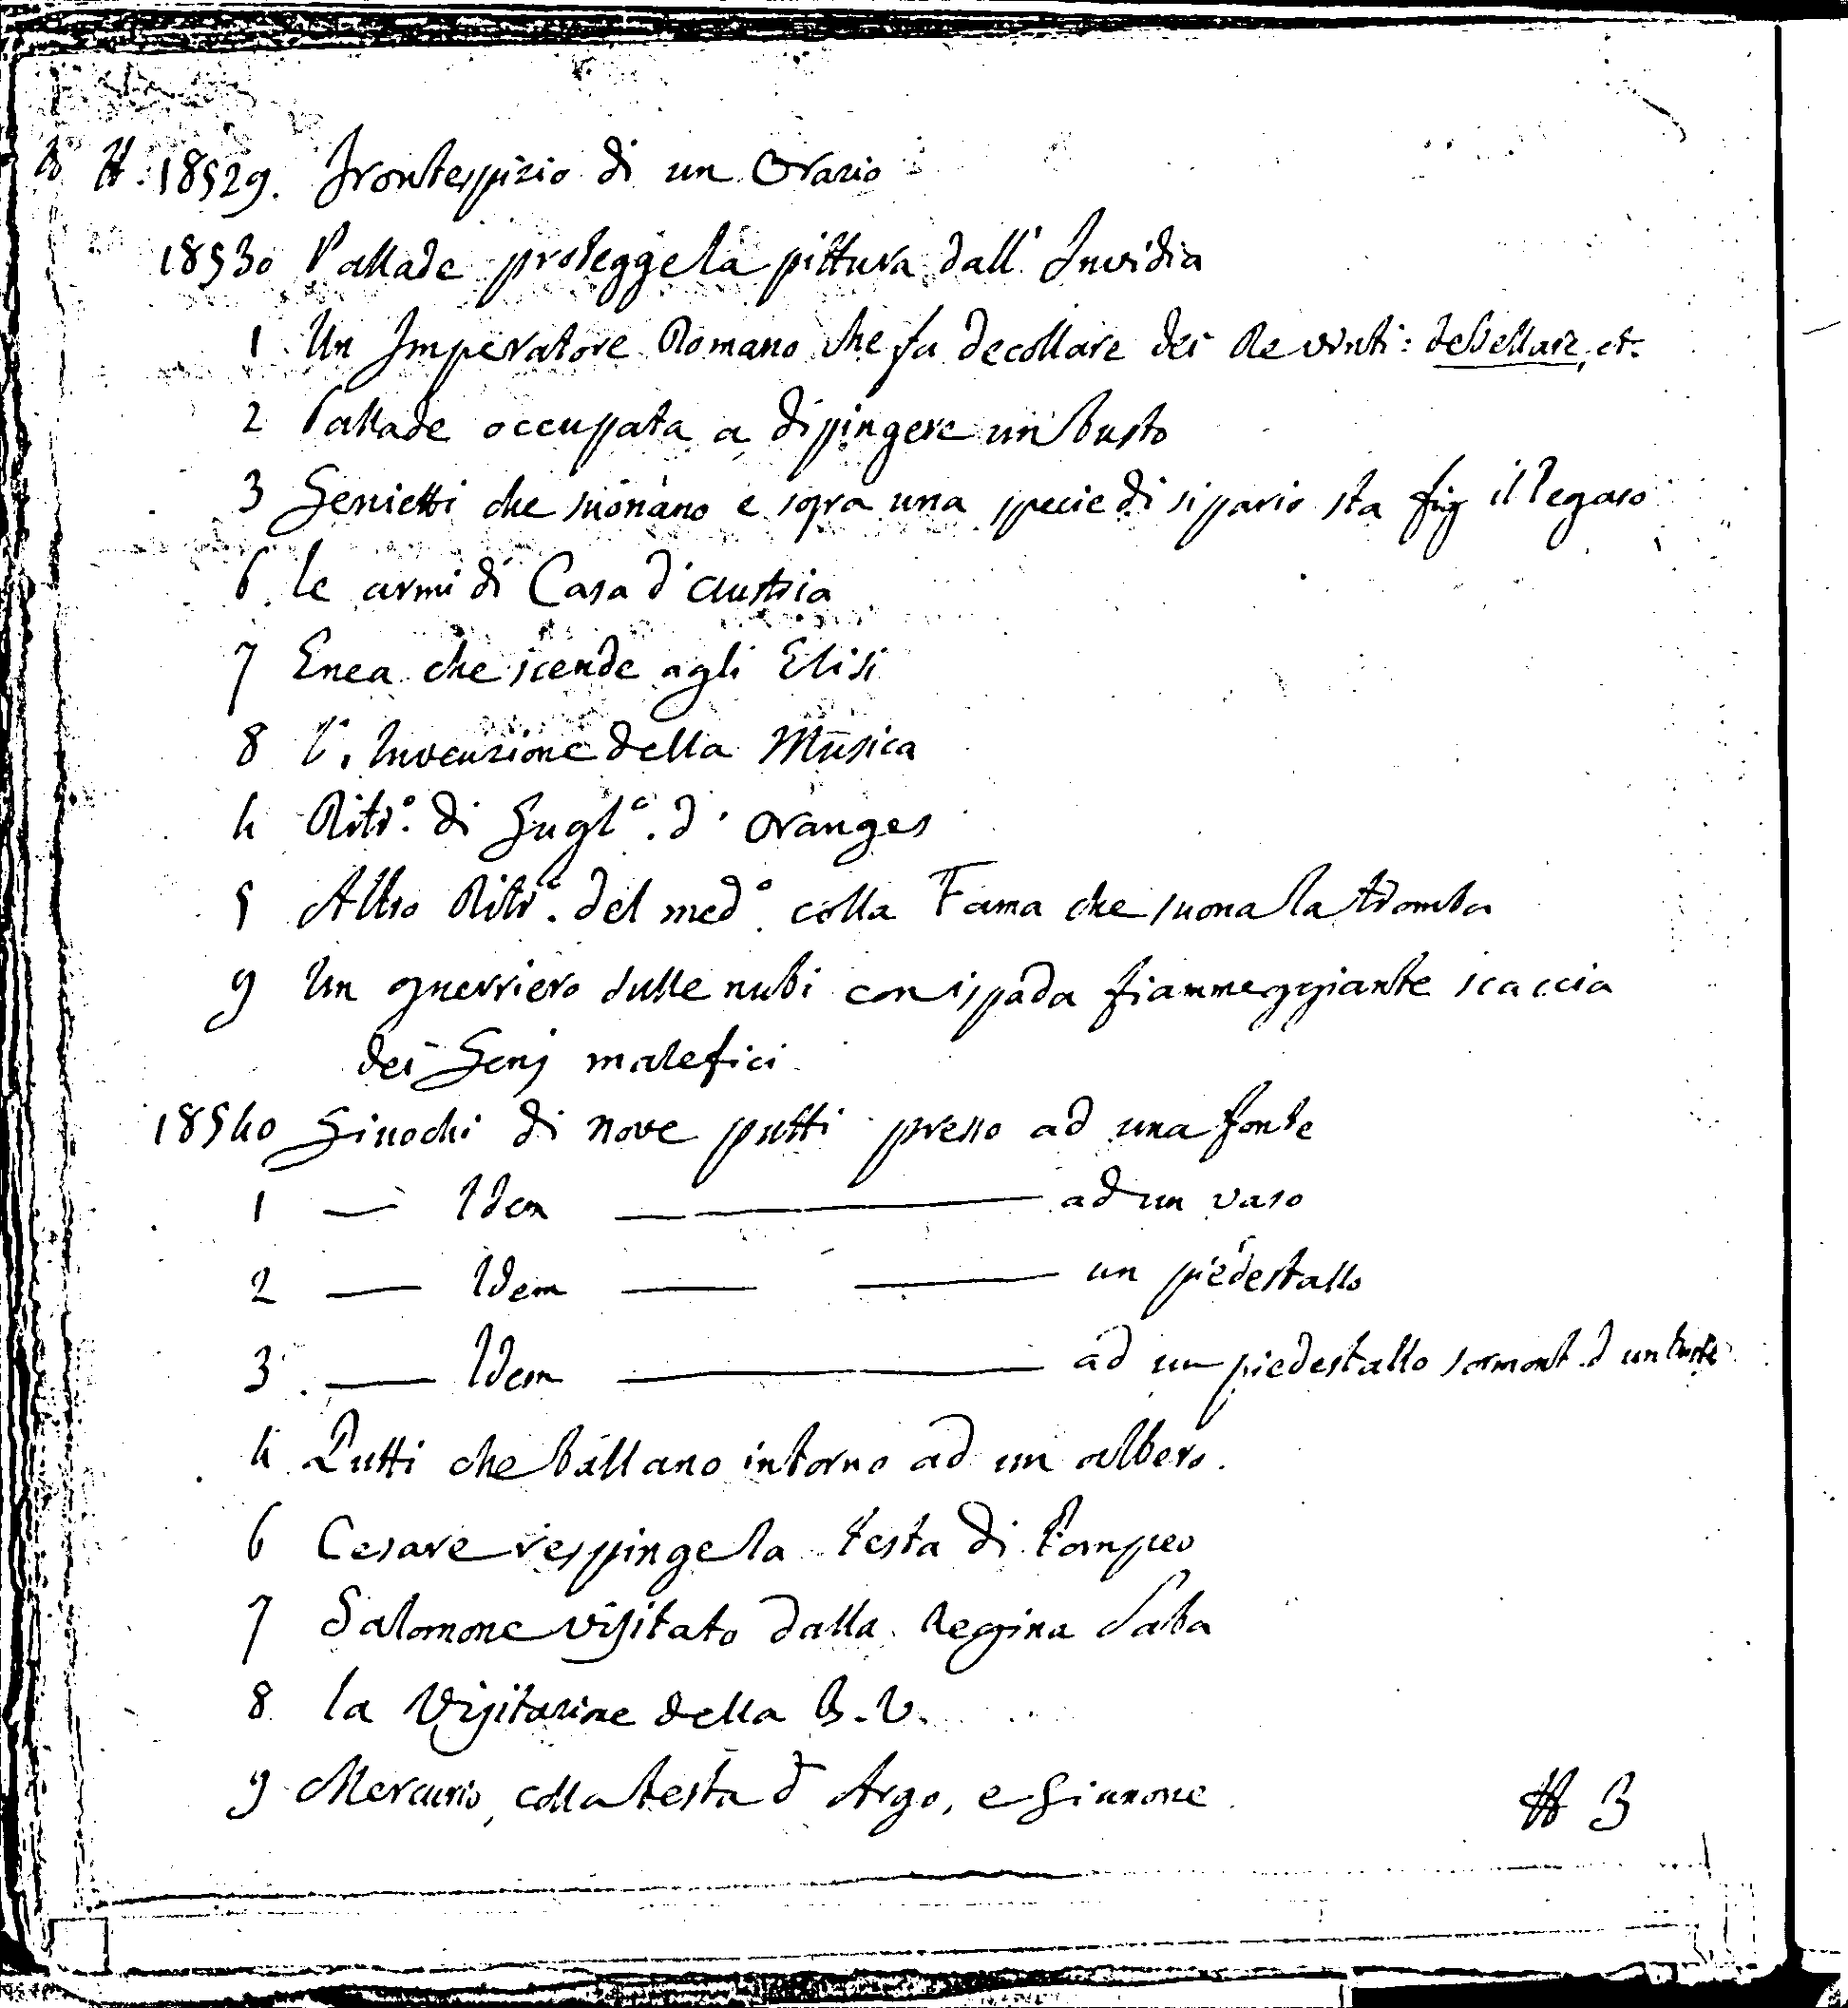 H. 18529. Frontespizio di un Orazio
18530 Pallade protegge la pittura dall' Invidia
1 Un Imperatore Romano che fa decollare dei Re vinti: debellare, et.
2 Pallade occupata a dipingere un busto
3 Genietti che suonano e sopra una specie di sipario sta fig il Pegaso
6 Le armi di Casa d'Austria
7 Enea che scende agli Elisi
8 L'Invenzione della Musica
4 Ritr.º di Gugl.º d'Oranges
5 Altro Ritr.º del med.º colla Fama che suona la tromba
9 Un guerriero sulle nubi con ispada fiammeggiante scaccia
dei Genj malefici
18540 Giuochi di nove putti presso ad una fonte
1 — Idem — ad un vaso
2 — Idem — — un piedestallo
3 — Idem — ad un piedestallo sormont. d un busto
4 Putti che ballano intorno ad un albero.
6 Cesare respinge la testa di Pompeo
7 Salomone visitato dalla Regina Saba
8 la Visitazione della B. V.
9 Mercurio, colla testa d Argo, e Giunone
# 3